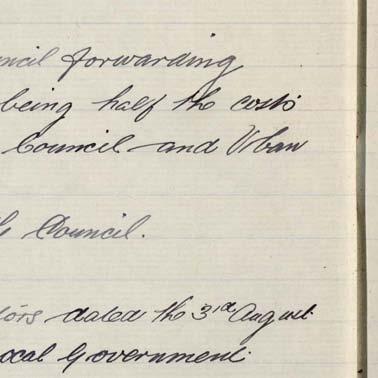 ncil forwarding
being half the costs
Council and Urban
Council.
tors dated the 3rd August
ocal Government